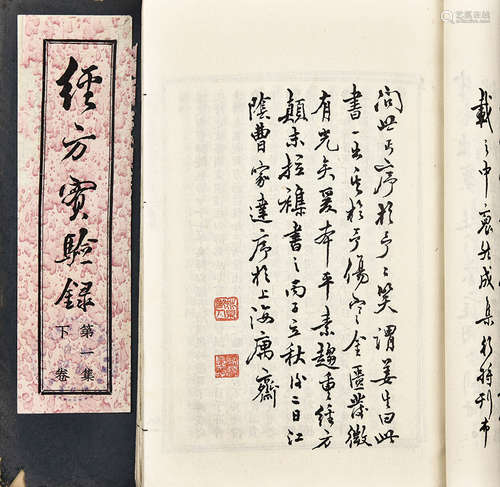 經方實驗錄
第一集
下卷
問世丐序於予予笑謂姜生曰此
書一出其於予傷寒金匱發微
有光矣爰本平素趨重經方
顛末拉雜書之丙子立秋後二日江
陰曹家達序於上海寓齋
載之中裒然成集行將刊布